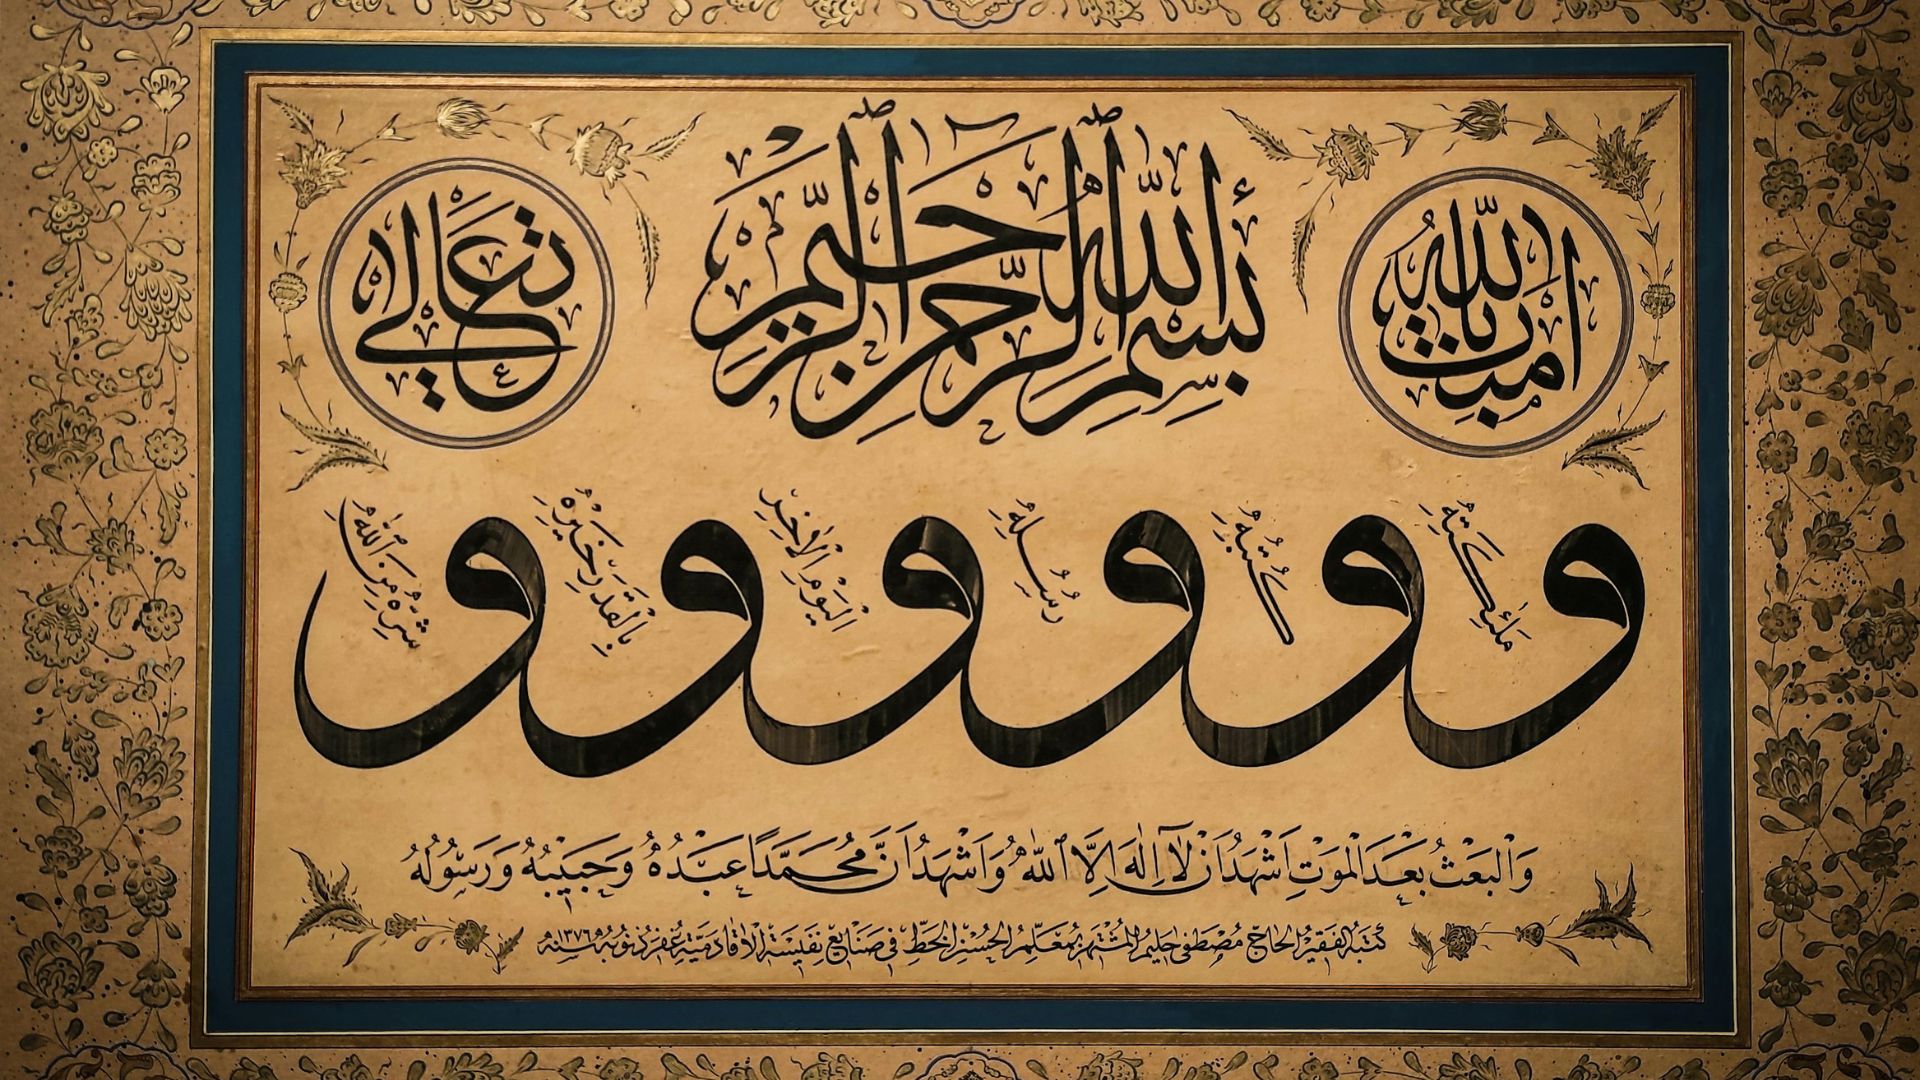 بِسْمِ اللّٰهِ الرَّحْمٰنِ الرَّحِيمِ
اٰمَنْتُ بِاللّٰهِ
تَعَالٰى
و مَلٰئِكَتِهِ
و كُتُبِهِ
و رُسُلِهِ
و الْيَوْمِ الْاٰخِرِ
و بِالْقَدَرِ خَيْرِهِ
و شَرِّهِ مِنَ اللّٰهِ
وَالْبَعْثُ بَعْدَ الْمَوْتِ اَشْهَدُ اَنْ لَا اِلٰهَ اِلَّا اللّٰهُ وَاَشْهَدُ اَنَّ مُحَمَّدًا عَبْدُهُ وَحَبِيبُهُ وَرَسُولُهُ
كتبه الفقير الحاج مصطفى حليم المشتهر بمعلم الحسن الخط فى صنايع نفيسة الاقادمية غفر ذنوبه سنه ١٣٧٦